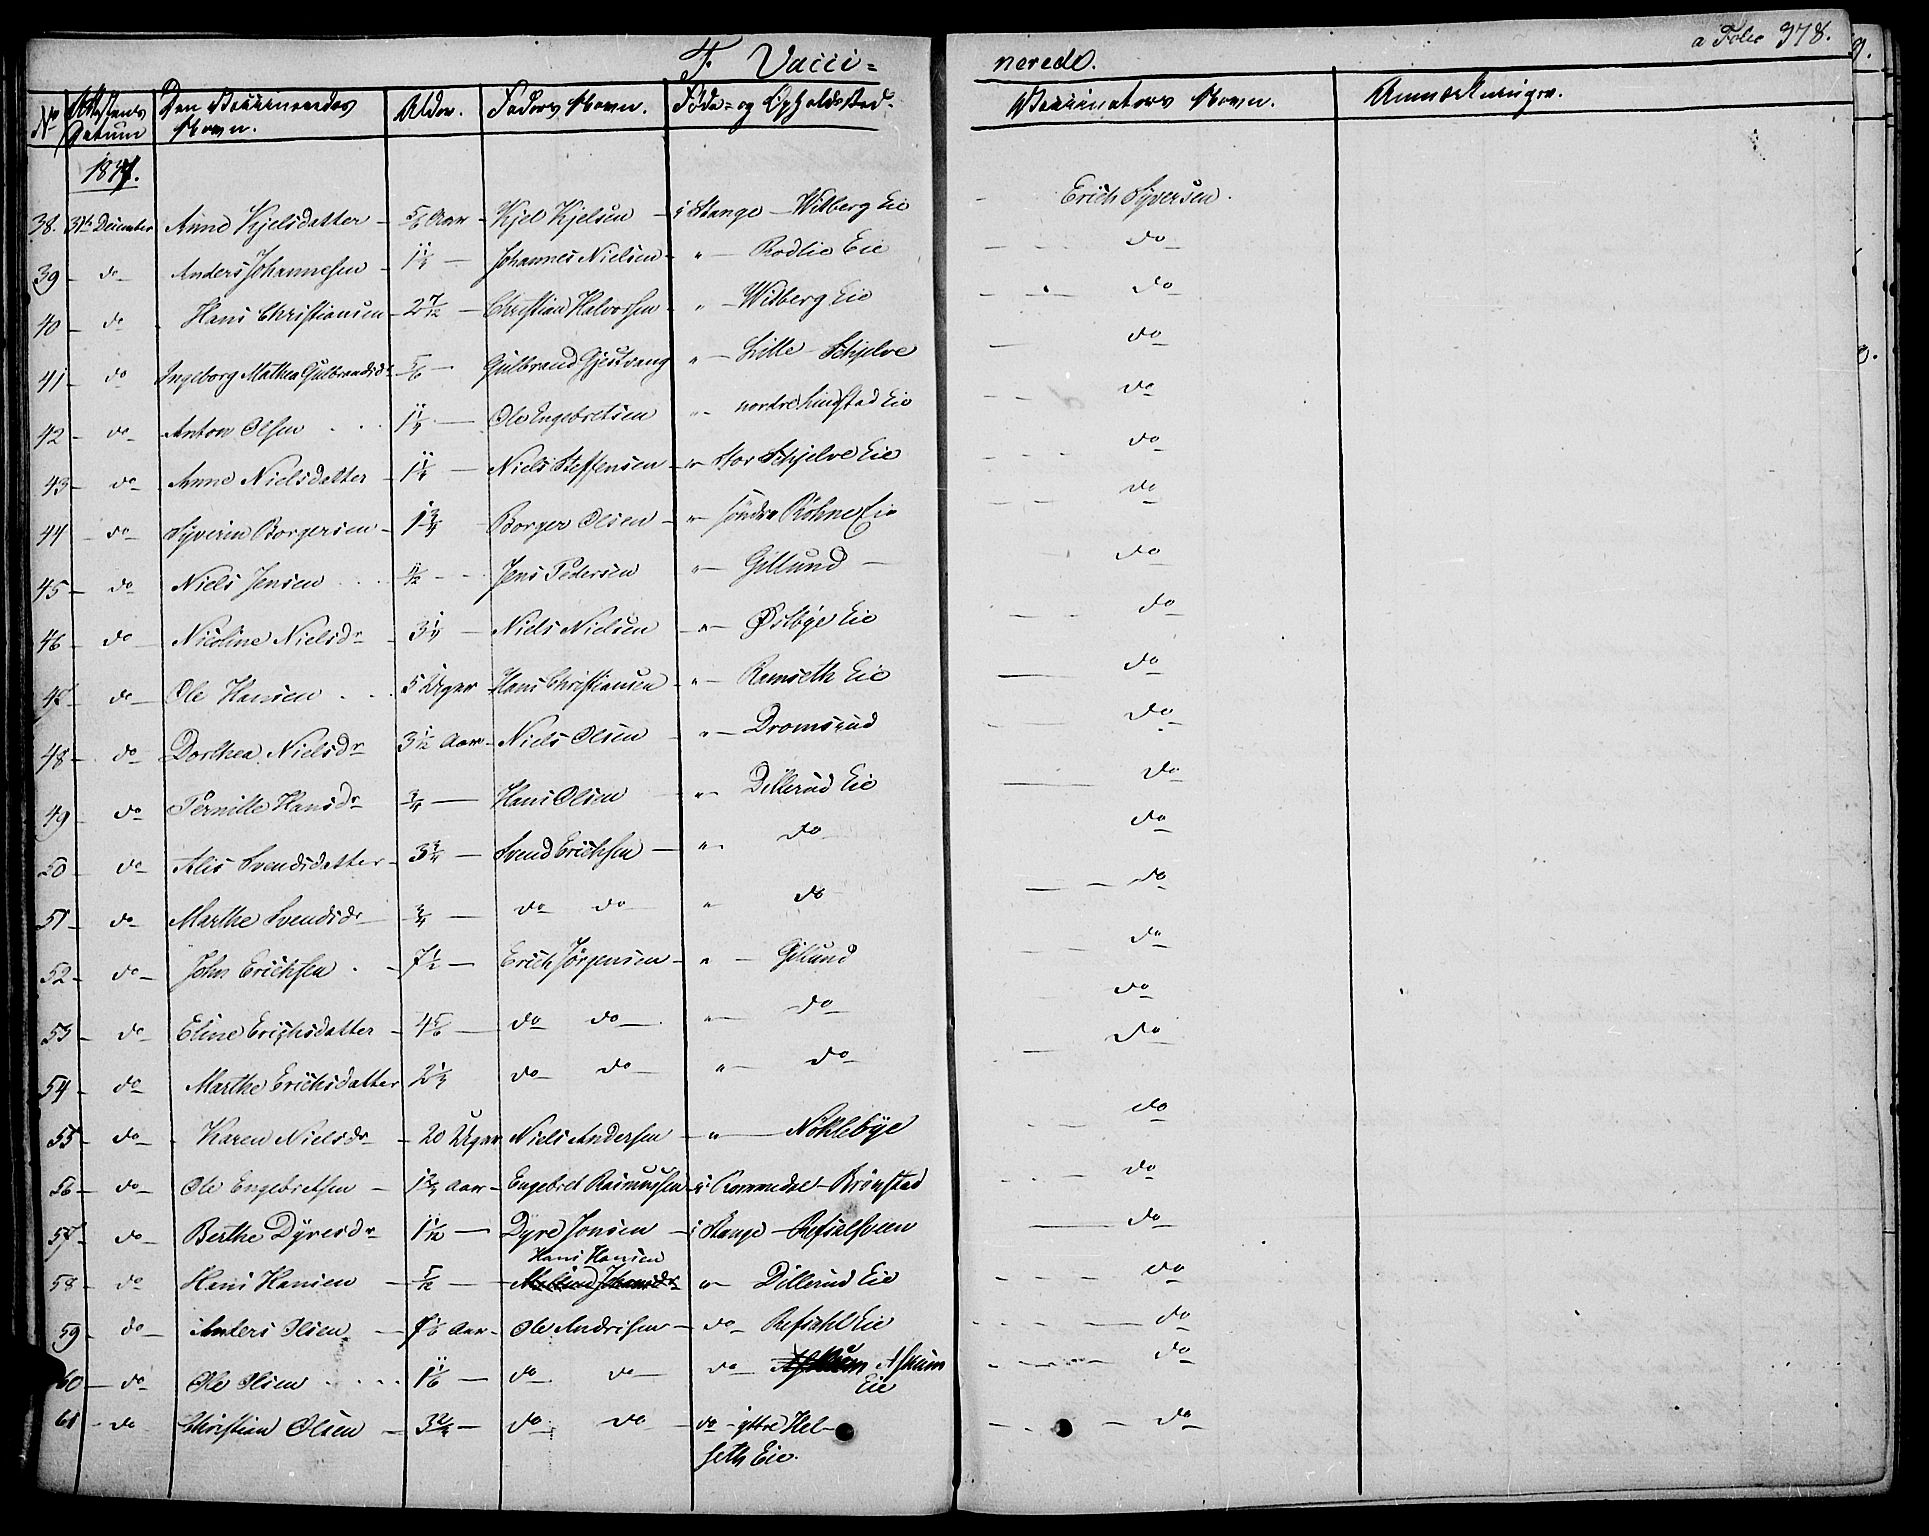 a Folio 378.
F. Vacci= nerede.
No Attestens Datum Den Vaccineredes Navn. Alder. Faders Navn. Føde- og Opholdssted. Vaccinators Navn. Anmærkninger.
1841.
38. 31te December Anne Kjelsdatter - 5/6 Aar - Kjel Kjelsen - i Stange - Wilberg Eie - Erich Syversen.
39 - do - Anders Johannesen - 1 1/4 - Johannes Nielsen - " - Rodlie Eie - do
40 - do - Hans Christiansen - 2 7/12 - Christian Halvorsen - " - Wilberg Eie - do
41 - do Ingeborg Mathea Gulbrandsdr 5/6 - Gulbrand Gjestvang " - Lille Schjelve - do
42 - do - Anton Olsen 1 1/4 - Ole Engebretsen " - nordre Lindstad Eie - do
43 - do - Anne Nielsdatter - 1 1/4 - Niels Steffensen - " - Stor Schjelve Eie - do
44 - do - Syverin Borgersen - 1 3/4 Borger Olsen - " - søndre Røhne Eie - do
45 - do - Niels Jensen 1/2 - Jens Pedersen " - Gillund - do
46 - do - Nicoline Nielsdr - 3 1/4 - Niels Nielsen - " - Østbye Eie - do
47 - do - Ole Hansen 5 Uger Hans Christiansen - " - Ramseth Eie - do
48 - do - Dorthea Nielsdr 3 1/2 Aar - Niels Olsen " - Dromsrud - do
49 - do - Pernille Hansdr 3/4 - Hans Olsen " - Dillerud Eie - do
50 - do - Alis Svendsdatter - 3 3/4 - Svend Erichsen - " - do - do
51 - do - Marthe Svendsdr - 3/4 - do - do - " do - do
52 - do - John Erichsen - 7 1/2 - Erich Jørgensen - " - Gillund - do
53 - do - Eline Erichsdatter - 4 5/6 - do - do - " - do - do
54 - do - Marthe Erichsdatter 2 1/4 do - do - " - do - do
55 - do - Karen Nielsdr - 20 Uger Niels Andersen - " - Nøklebye - do
56 - do - Ole Engebretsen - 1 3/4 Aar - Engebret Rasmussen - i Romedal - Brønstad - do
57 - do - Berthe Dyresdr - 1 1/12 - Dyre Jonsen - i Stange - Refsalsveen - do
Hans Hansen
58 - do - Hans Hansen - 5/12 - " - Dillerud Eie - do
59 - do - Anders Olsen - Aar - Ole Andersen - do - Refsahl Eie - do
60 - do - Ole Olsen 1 1/6 - do - do do - Askum
Eie - do
61 - do Christian Olsen - 3 2/4 - do - do - do - yttre Hel-
seth Eie. - do